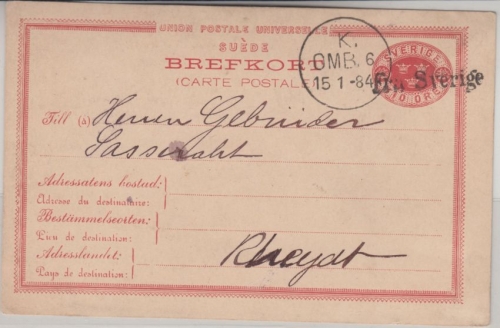 UNION POSTALE UNIVERSELLE
SUÈDE
BREFKORT
(CARTE POSTALE)
K.
OMB. 6
15 1 -84
SVERIGE
TIO ÖRE
Fr. Sverige
Till (à) Herren Gebrüder
Adressatens bostad:
Adresse du destinataire:
Bestämmelseorten:
Lieu de destination:
Adresslandet:
Pays de destination:
Rheydt